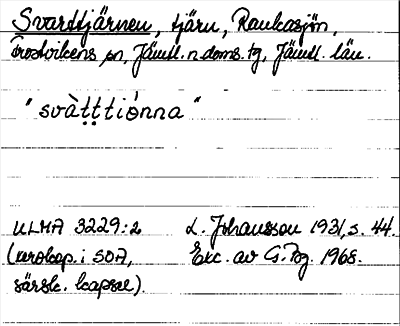 Svarttjärnen, tjärn, Raukasjön,
Frostvikens sn, Jämtl. n. doms. tg, Jämtl. län.
"svàṭṭtiǿnna"
ULMA 3229:2 L. Johansson 1931, s. 44.
(xerokop. i SOA, Exc. av G. Pg. 1968.
särsk. kapsel).